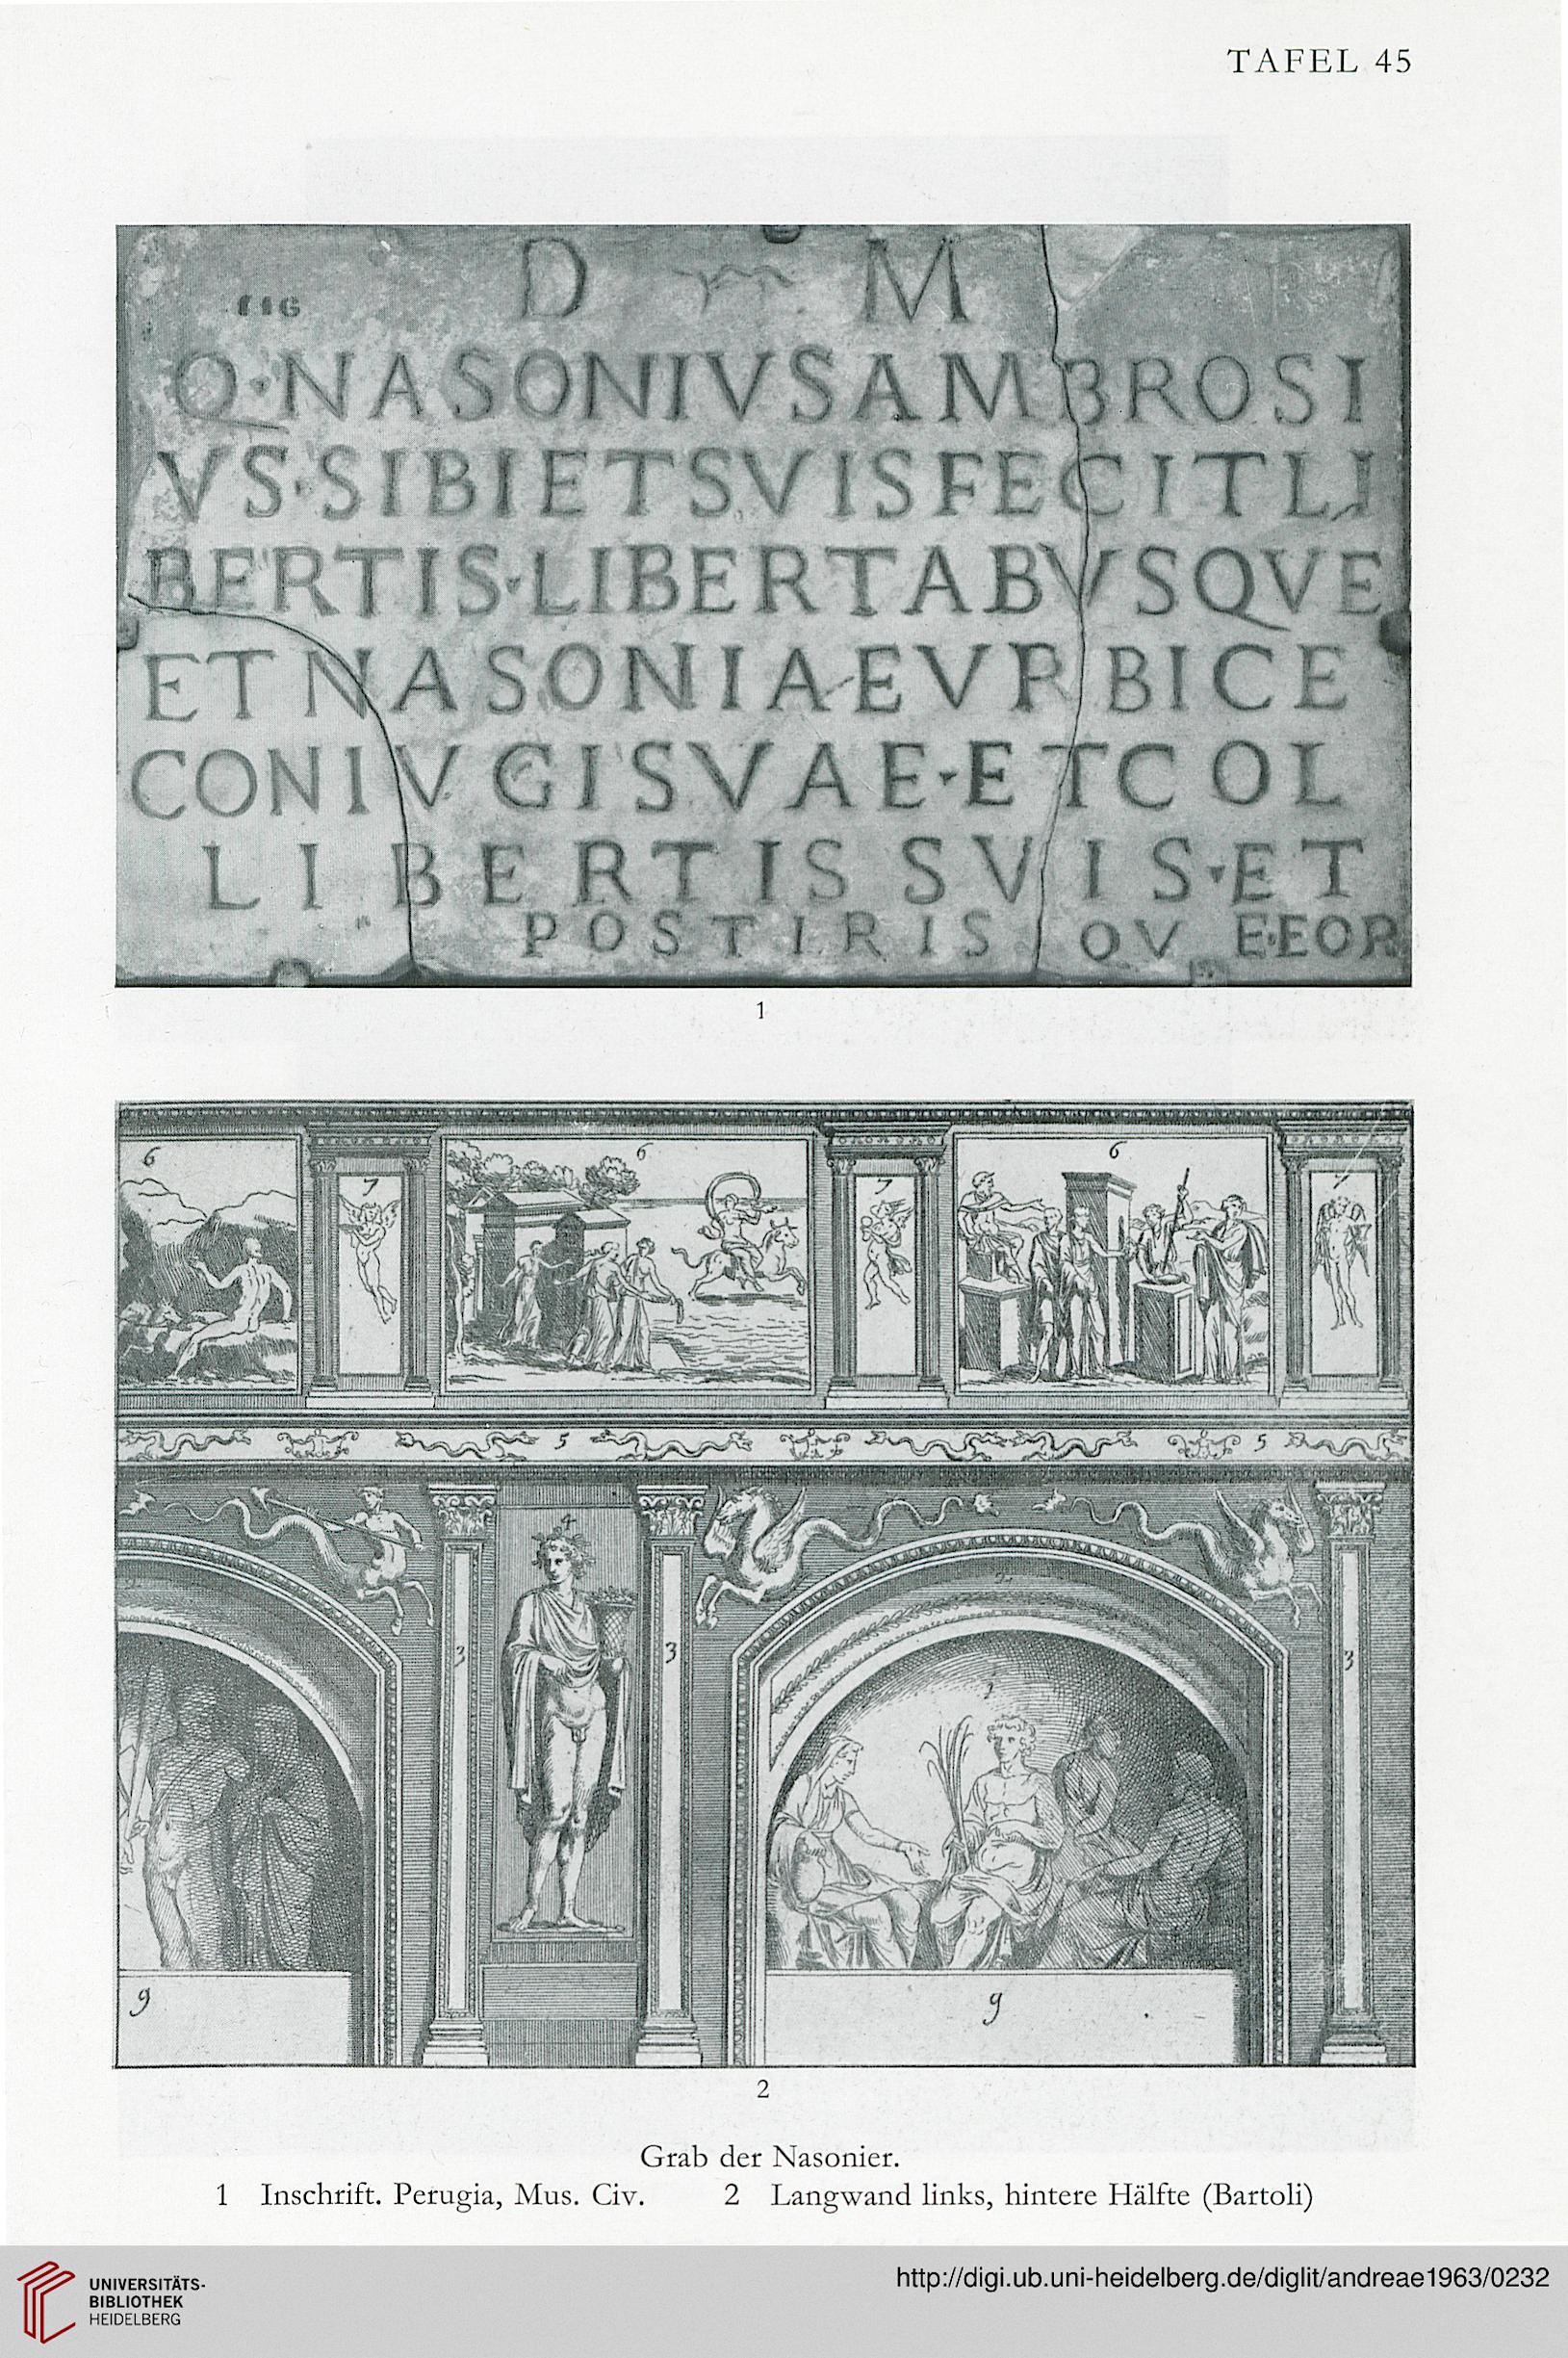 TAFEL 45
D M
116
Q·NASONIVSAMBROSI
VS·SIBIETSVISFECITLI
BERTIS·LIBERTABVSQVE
ETNASONIAEVRBICE
CONIVGISVAE·ETCOL
LIBERTISSVIS·ET
POSTIRISQV E·EOR
1
6 6 6
7 7 7
5 5
4
2 2
3 3 3
1
9 9
2
Grab der Nasonier.
1 Inschrift. Perugia, Mus. Civ. 2 Langwand links, hintere Hälfte (Bartoli)
UNIVERSITÄTS-
BIBLIOTHEK
HEIDELBERG
http://digi.ub.uni-heidelberg.de/diglit/andreae1963/0232